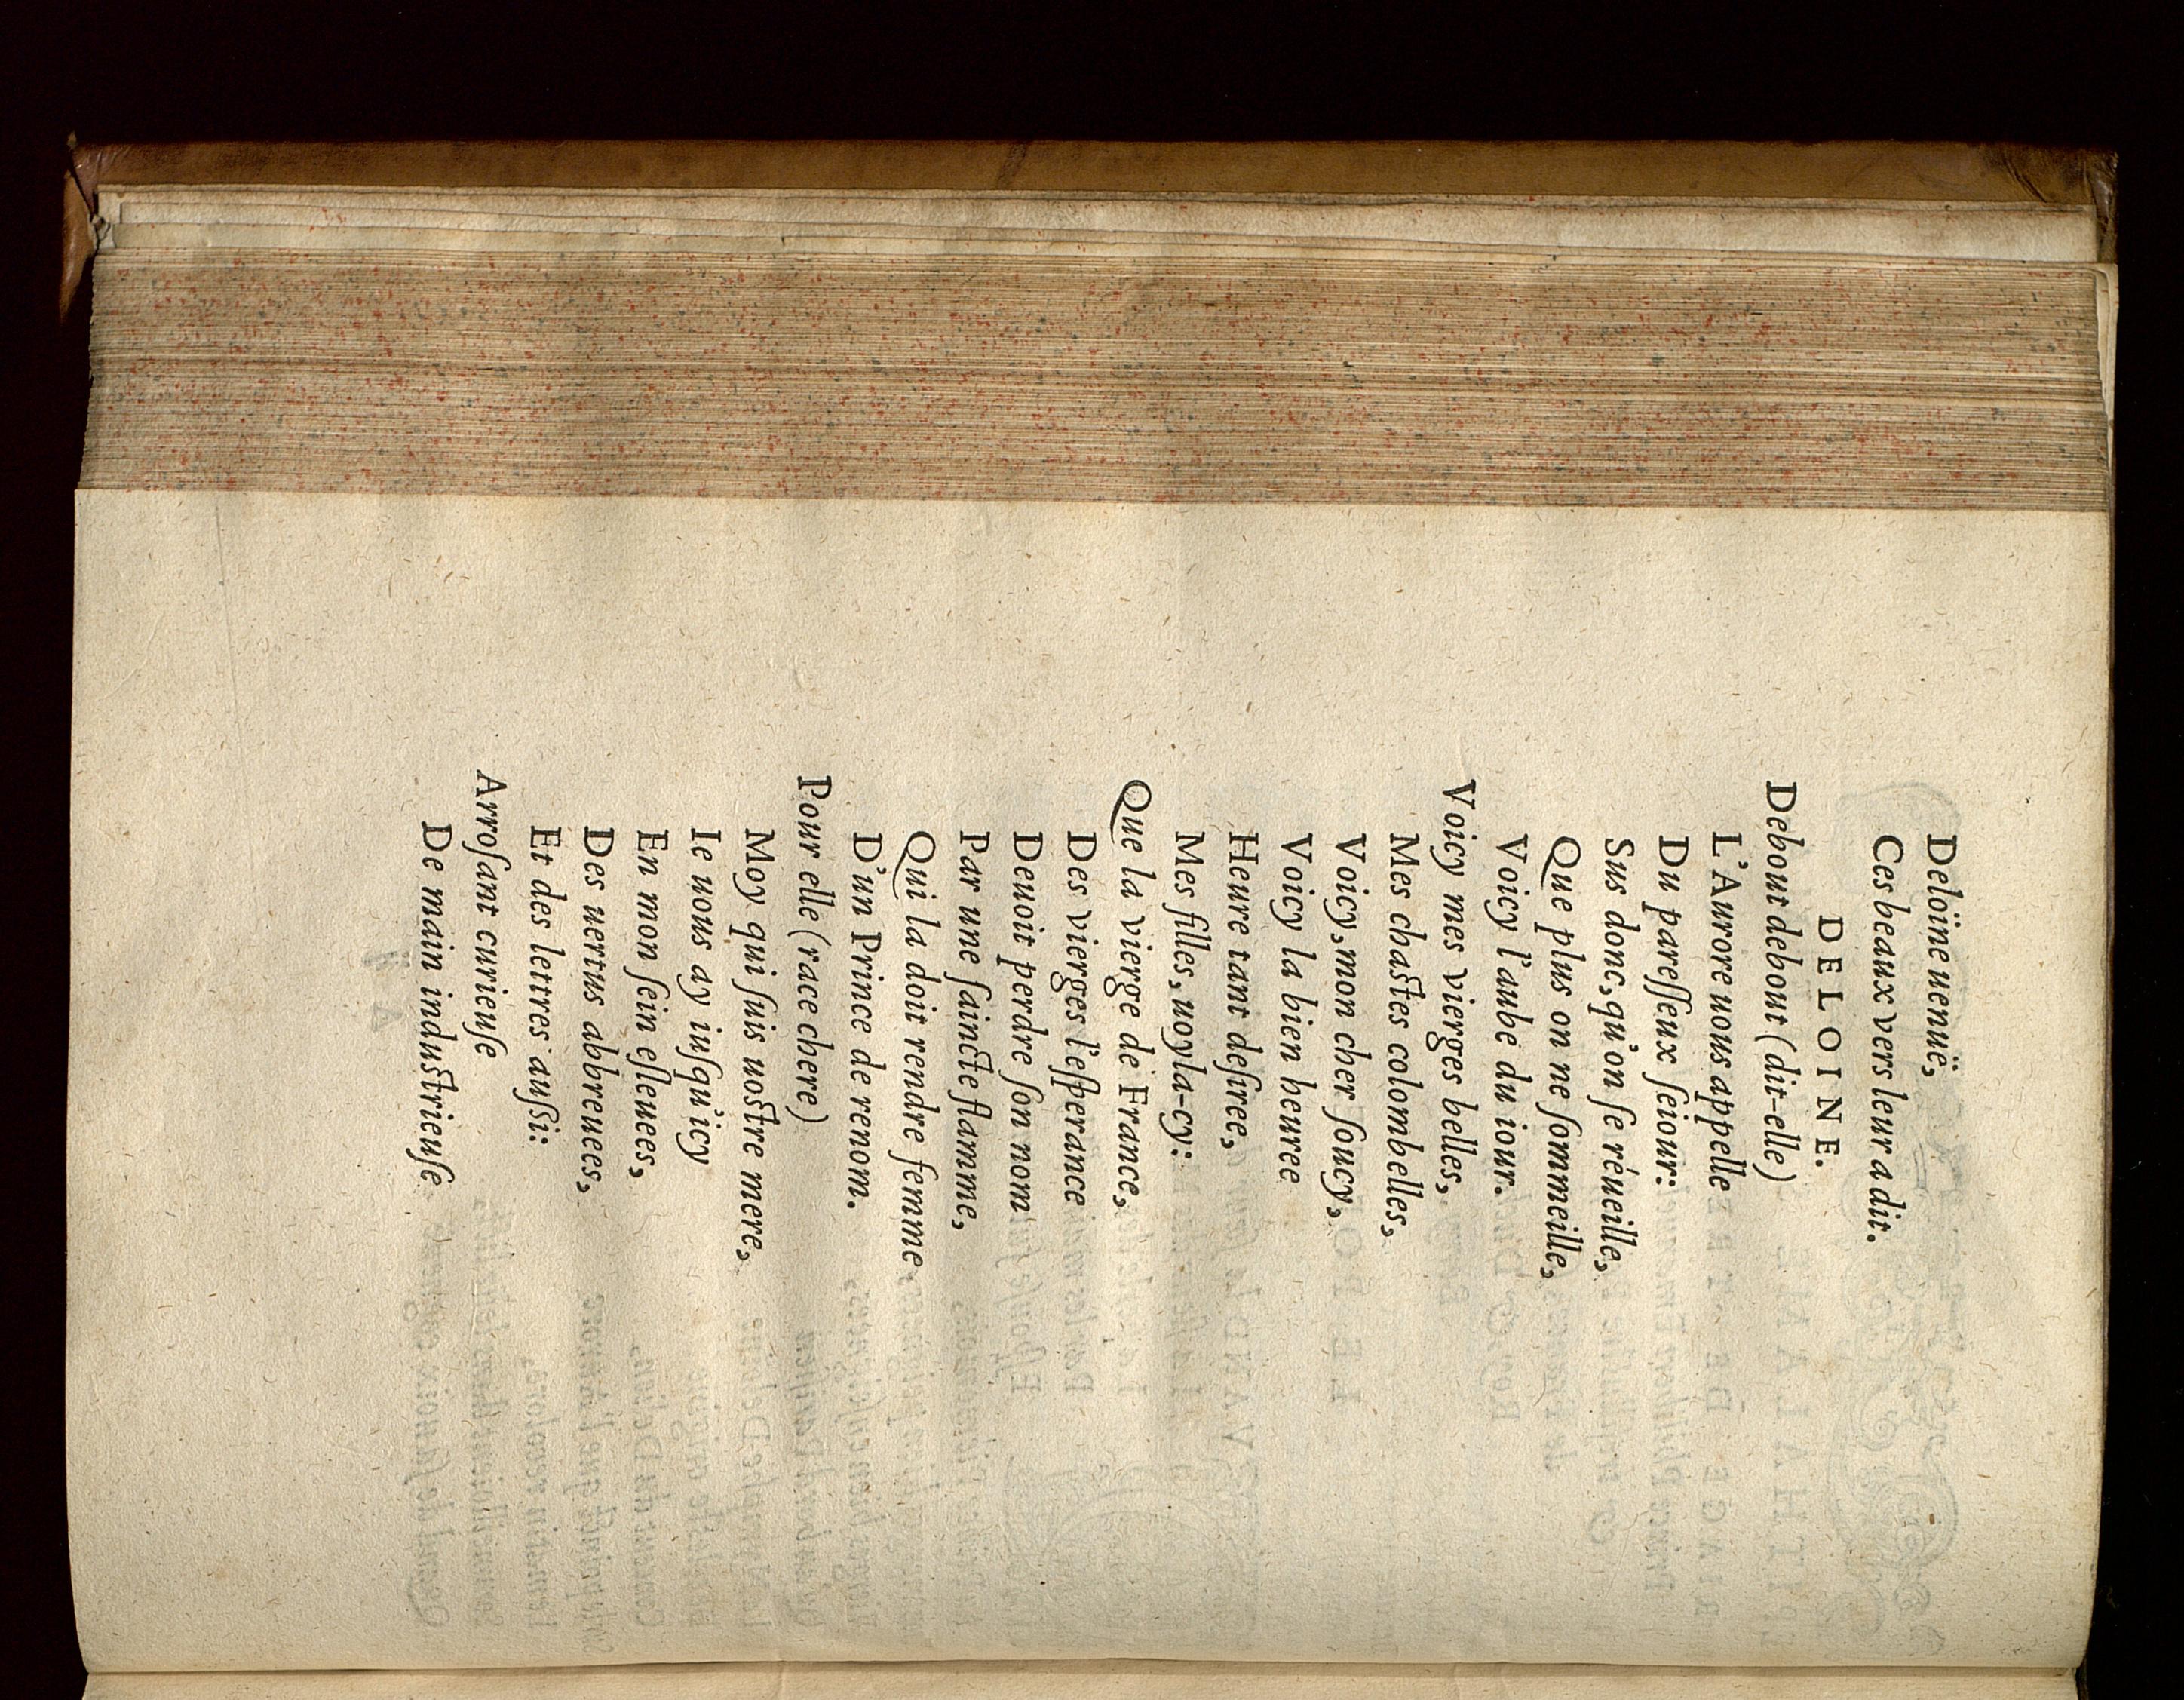 Deloïne uenuë,
Ces beaux vers leur a dit.
DELOINE.
Debout debout (dit-elle)
L'Aurore uous appelle
Du paresseux seiour:
Sus donc, qu'on se réueille,
Que plus on ne sommeille,
Voicy l'aube du iour.
Voicy mes vierges belles,
Mes chastes colombelles,
Voicy, mon cher soucy,
Voicy la bien heuree
Heure tant desiree,
Mes filles, uoyla-cy:
Que la vierge de France,
Des vierges l'esperance
Deuoit perdre son nom
Par une saincte flamme,
Qui la doit rendre femme
D'un Prince de renom.
Pour elle (race chere)
Moy qui suis uostre mere,
Ie uous ay iusqu'icy
En mon sein esleuees,
Des uertus abbreuees,
Et des lettres aussi:
Arrosant curieuse
De main industrieuse